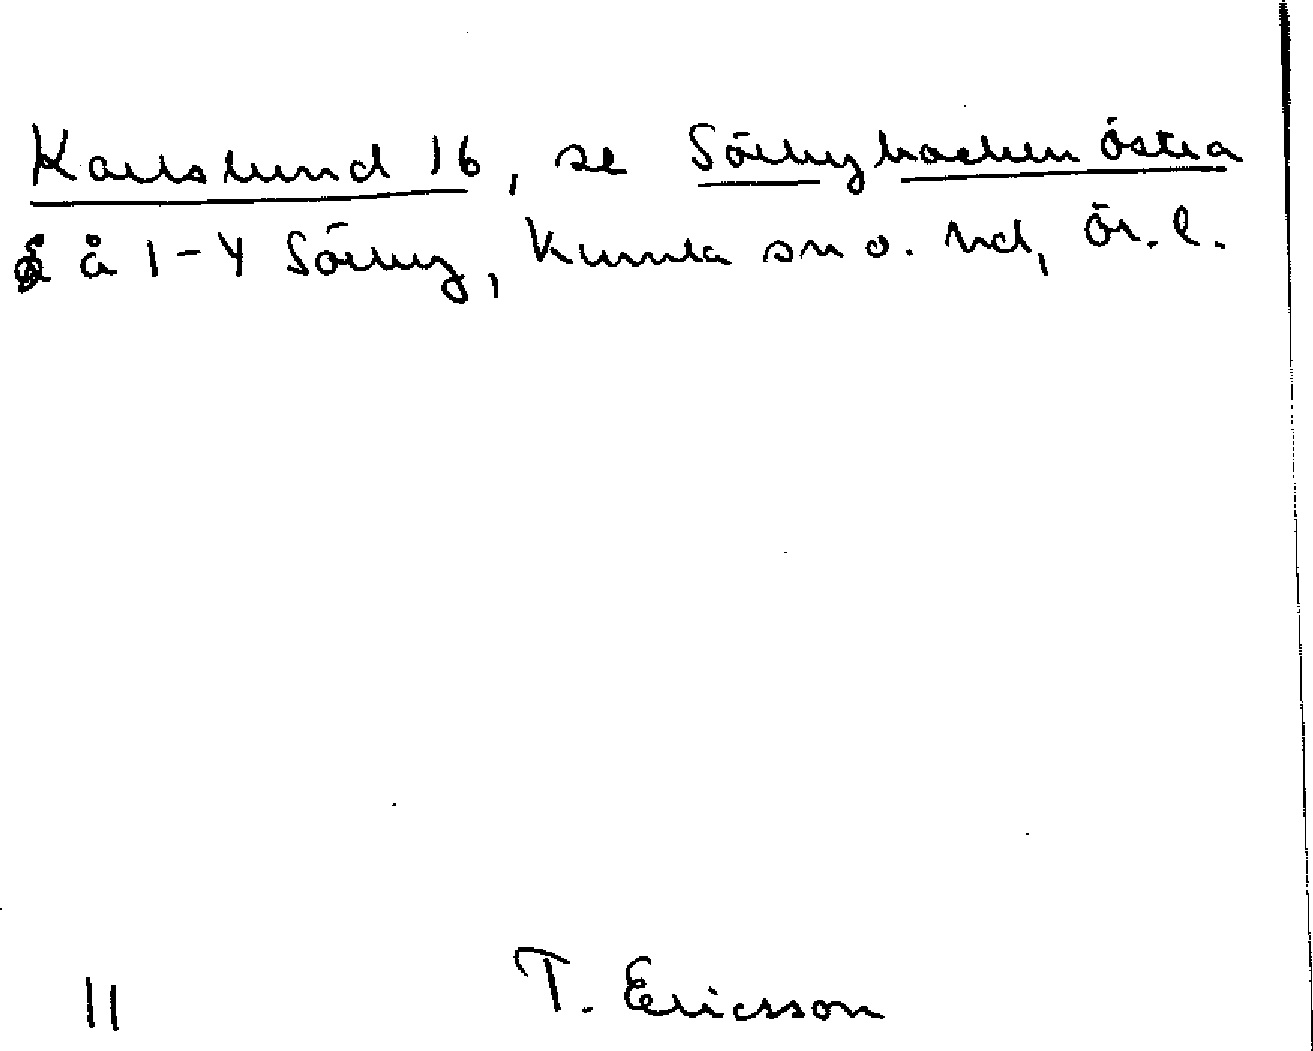 Karlslund 16, se Sörbybacken östra
å 1-4 Sörby, Kumla sn o. hd, Ör. l.
11 T. Ericsson